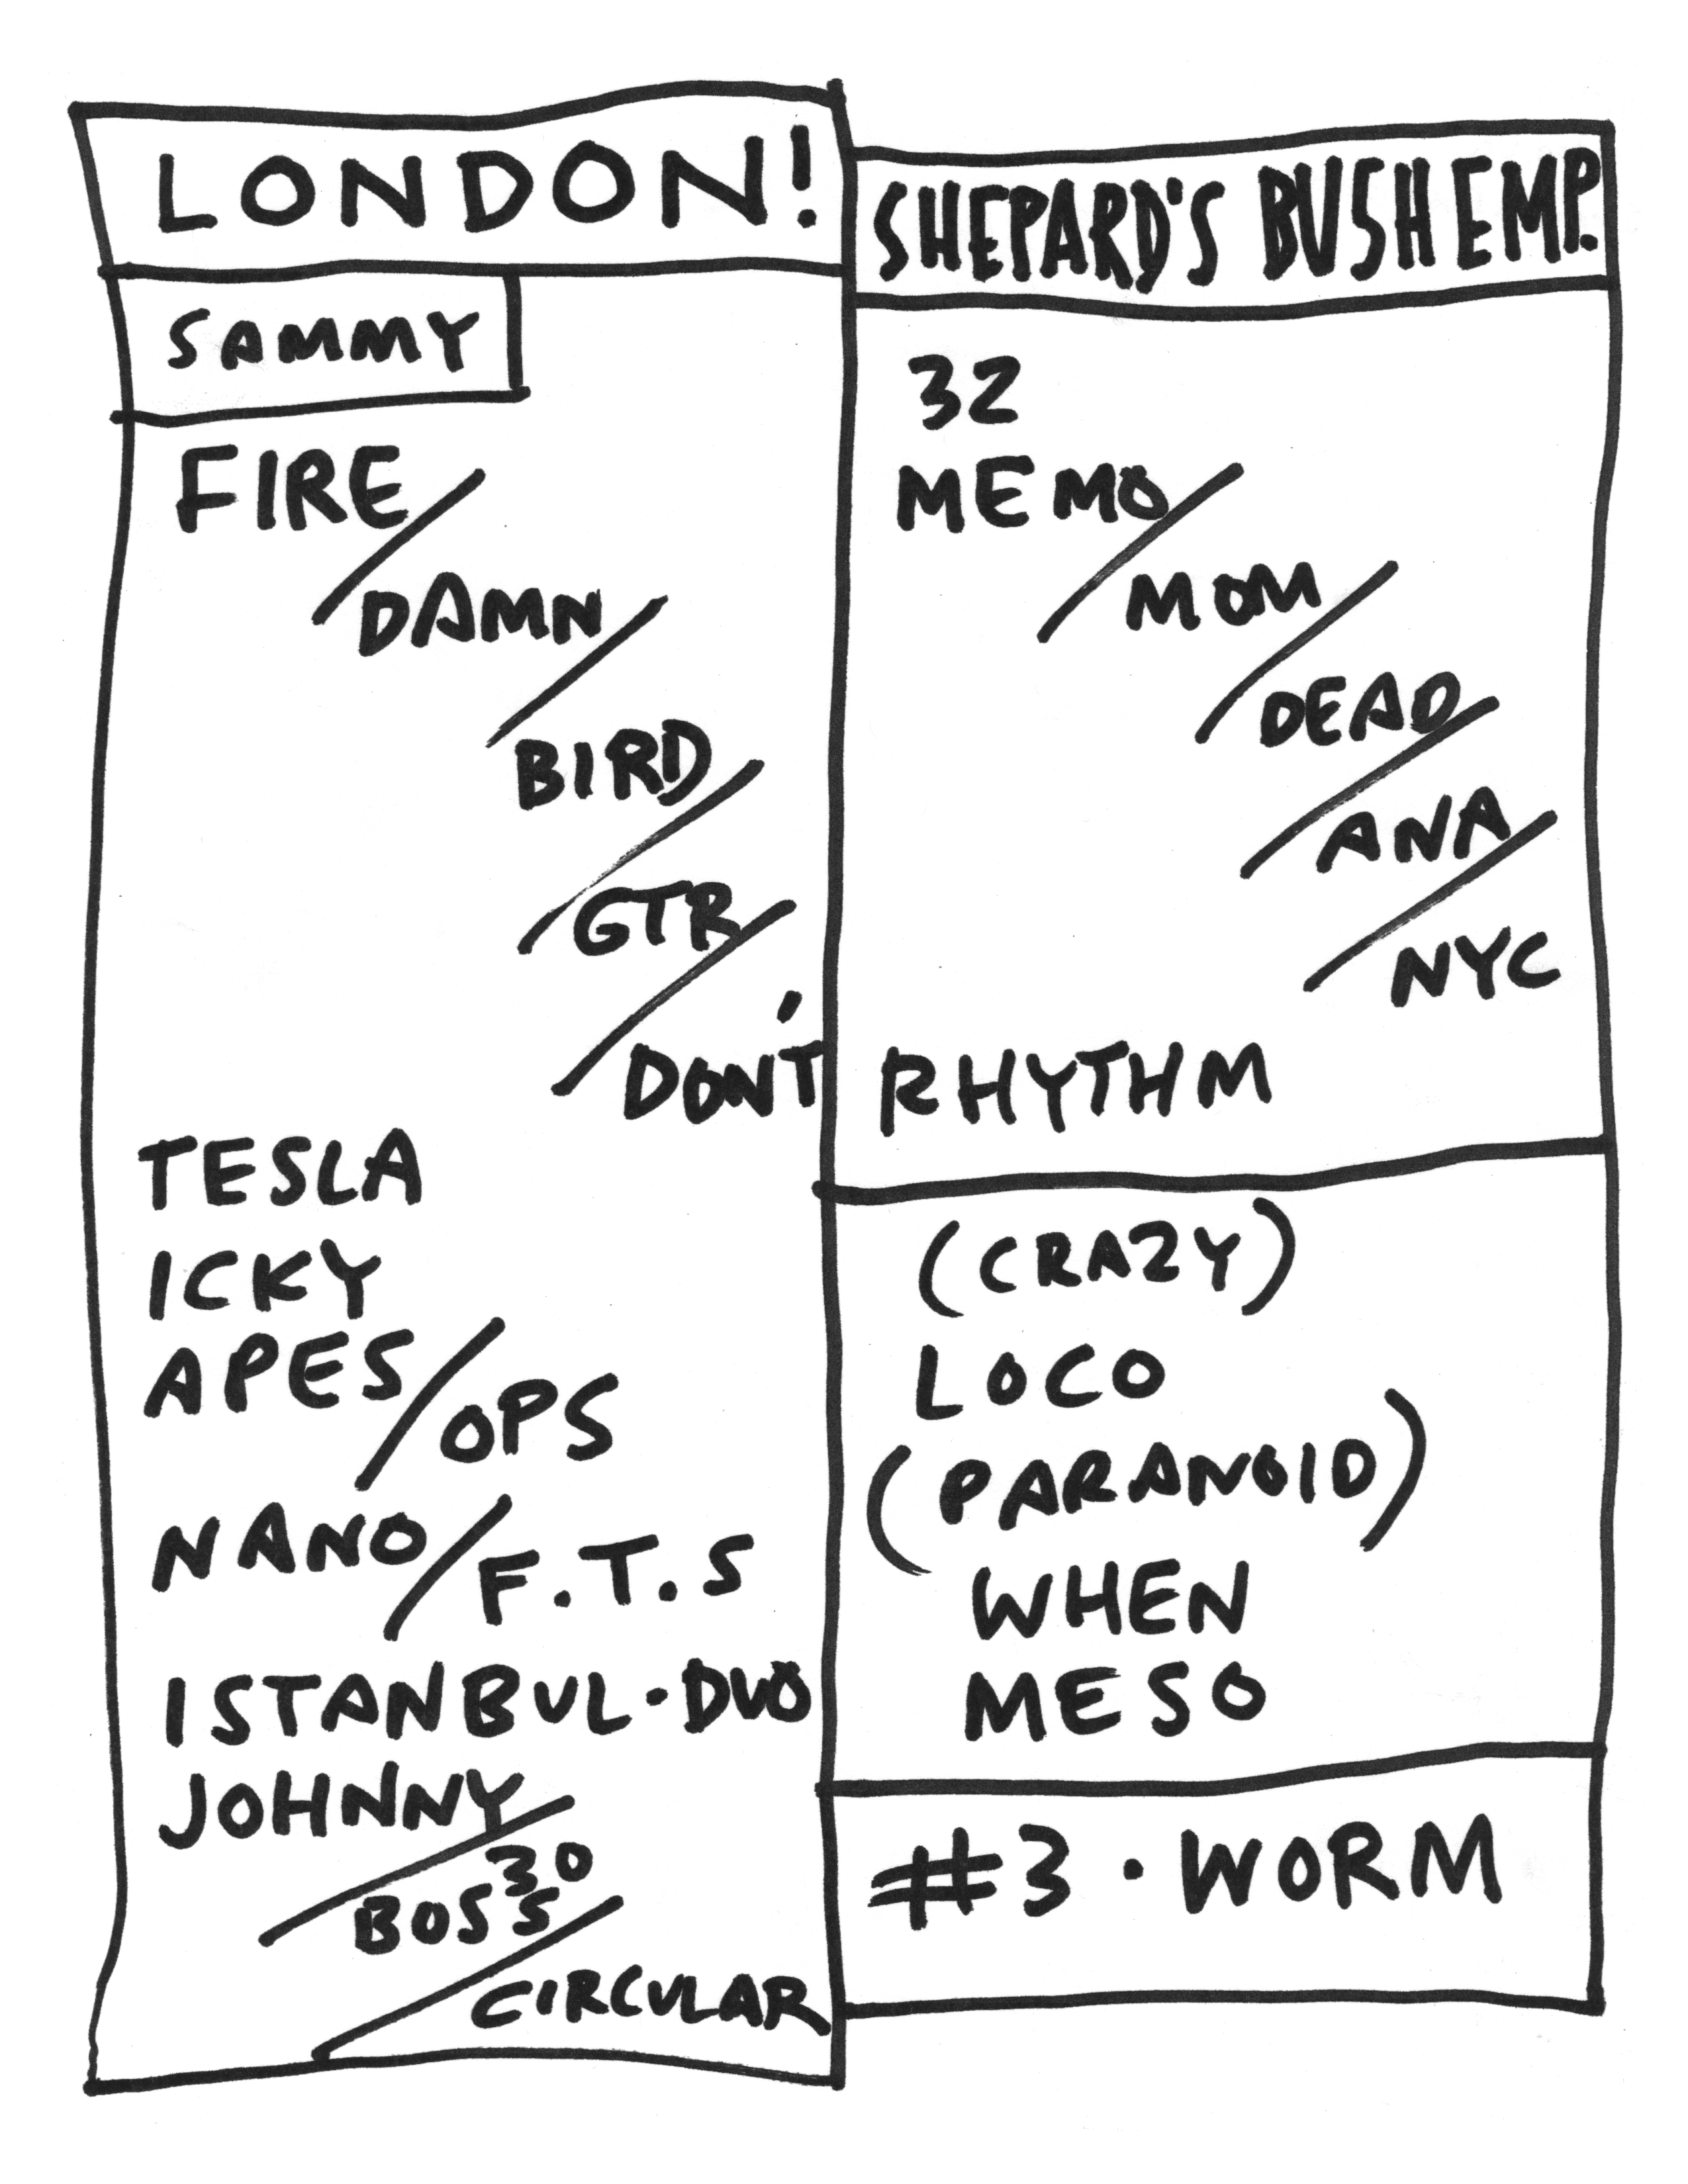 LONDON!
SAMMY
FIRE/
DAMN/
BIRD/
GTR/
DON'T
TESLA
ICKY
APES/OPS
NANO/F.T.S
ISTANBUL·DUO
JOHNNY/
BOSS 30
CIRCULAR
SHEPARD'S BUSH EMP.
32
MEMO/
MOM/
DEAD/
ANA/
NYC
RHYTHM
(CRAZY)
LOCO
(PARANOID)
WHEN
MESO
#3·WORM